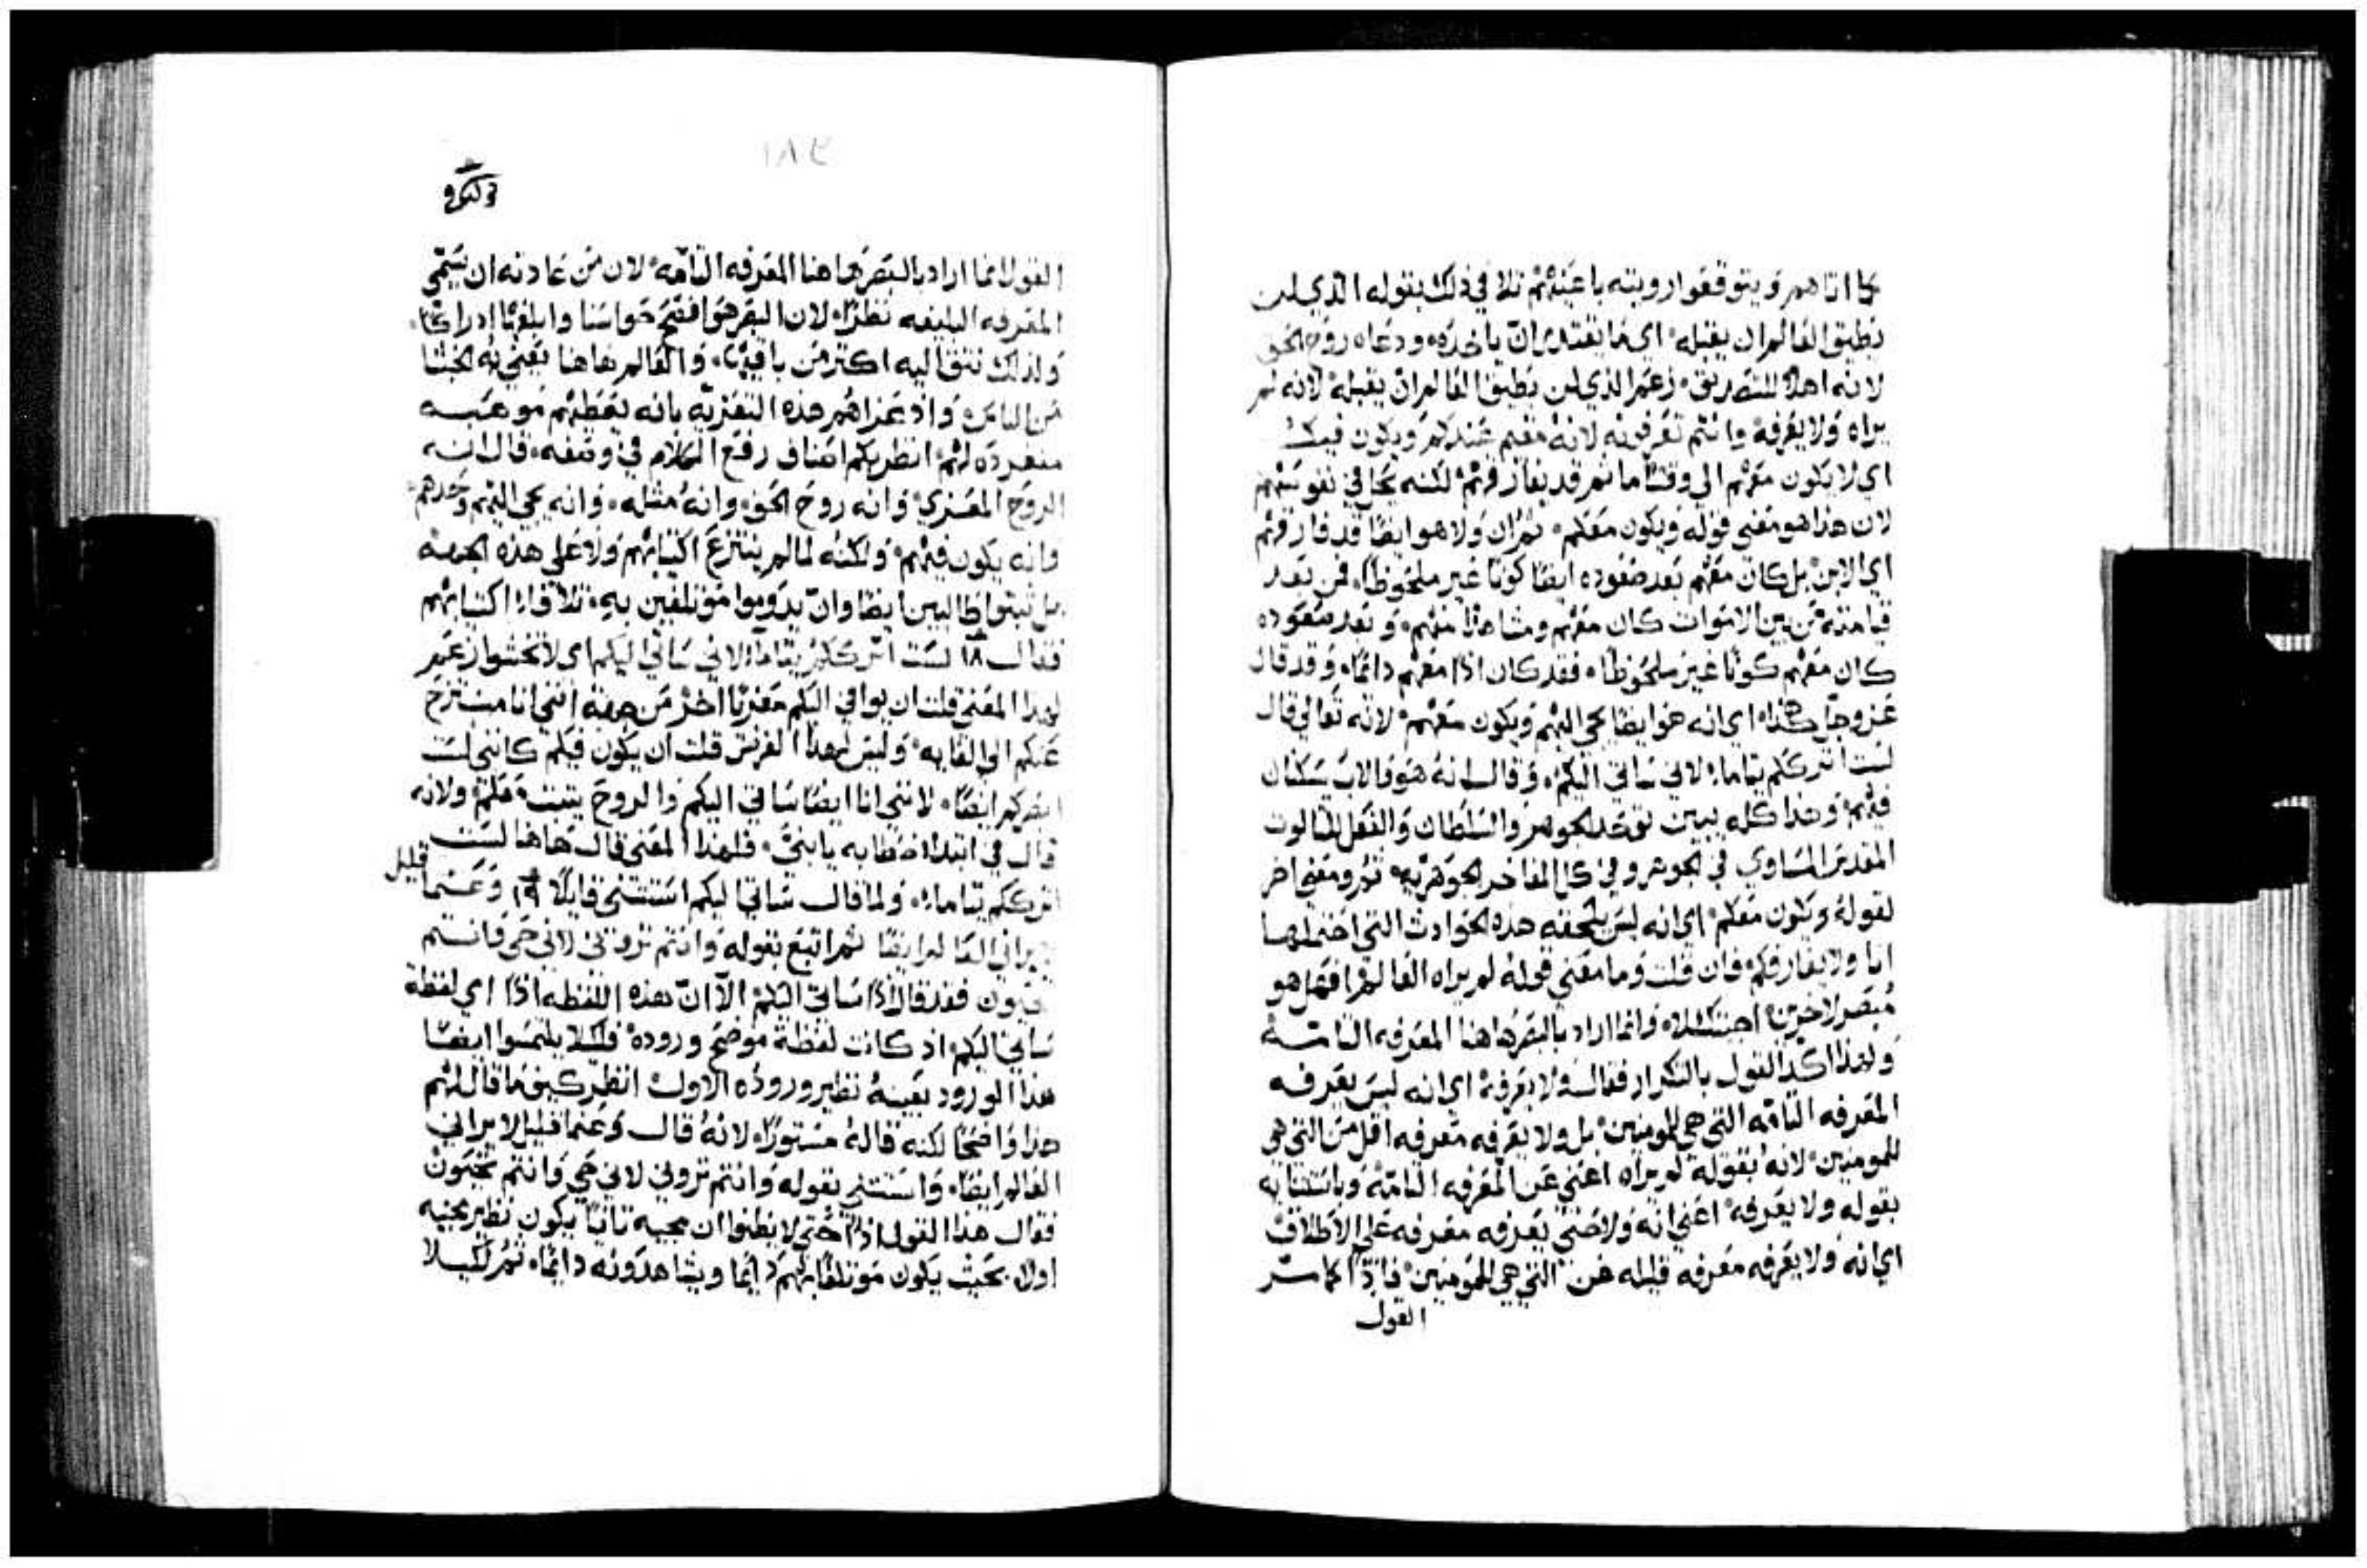 كما اتاهم ويتوقعوا رويته باعينهم تلا في ذلك بقوله الذي لن
يطيق العالم ان يقبله اي ما يقتدر ان ياخذه ودعاه روح الحق
لانه اهلا للتصديق زعم الذي لن يطيق العالم ان يقبله لانه لم
يراه ولا يعرفه وانتم تعرفونه لانه مقيم عندكم ويكون فيكم
اي لا يكون معهم الي وقت ما ثم قد يفارقهم لكنه يحل في نفوسهم
لان هذا هو معني قوله ويكون معكم ثم ان ولا هو ايضا قد فارقهم
اي الابن بل كان معهم بعد صعوده ايضا كونا غير ملحوظا فمن بعد
قيامته من بين الاموات كان معهم ومشاهدا منهم وبعد صعوده
كان معهم كونا غير ملحوظا فقد كان اذا معهم دائما وقد قال
عز وجل هكذا اي انه هو ايضا يجي اليهم ويكون معهم لانه تعالي قال
لست اترككم يتاما لاني ساتي اليكم وقال انه هو والاب يسكنان
فيهم وهذا كله يبين توحد الجوهر والسلطان والفعل للثالوث
المقدس المساوي في الجوهر وفي كل المفاخر الجوهريه ثم ومعني اخر
لقوله ويكون معكم اي انه ليس يلحقه هذه الحوادث التي احتملها
انا ولا يفارقكم فان قلت وما معني قوله لم يراه العالم افهل هو
مبصر لاخرين اجبتك لا وانما اراد بالبصر هاهنا المعرفه التامه
ولهذا اكد القول بالتكرار فقال ولا يعرفه اي انه ليس يعرفه
المعرفه التامه التي هي للمومنين بل ولا يعرفه معرفه اقل من التي هي
للمومنين لانه بقوله لم يراه اعني عن المعرفه التامه وباستثنايه
بقوله ولا يعرفه اعني انه ولا حتي يعرفه معرفه علي الاطلاق
اي انه ولا يعرفه معرفه قليله عن التي هي للمومنين فاذا كما
القول
١٨٢
القول انما اراد بالبصر هاهنا المعرفه التامه لان من عادته ان يسمي
المعرفه البليغه نظرا لان البصر هو افصح حواسنا وابلغها ادراكا
ولذلك نثق اليه اكثر من باقيها والعالم هاهنا يعني به الخبثا
من الناس واذ عزاهم هذه التعزيه بانه يعطيهم موهبه
منفرده لهم انظر بكم اصناف رفع الكلام في وصفه قال انه
الروح المعزي وانه روح الحق وانه مثله وانه يجي اليهم وحدهم
وانه يكون فيهم ولكنه لما لم ينتزع اكتيابهم ولا علي هذه الجهه
بل ثبتوا طالبين ايضا وان يدوموا موتلفين به تلافا اذا اكتيابهم
فقال ١٨ لست اترككم يتاما لاني ساتي اليكم اي لا تخشوا زعم
لهذا المعني قلت ان يوافي اليكم معزيا اخر من جهه انني انا منتزح
عنكم الي الغايه وليس لهذا الغرض قلت ان يكون فيكم كانني لست
ابصركم ايضا لانني انا ايضا ساتي اليكم والروح يثبت معكم ولانه
قال في ابتداء خطابه يا بني فلهذا المعني قال هاهنا لست
اترككم يتاما ولما قال ساتي اليكم استثني قايلا ١٩ وعما قليل
لا يراني العالم ايضا ثم اتبع بقوله وانتم تروني لاني حي وانتم
تحيون فقد قال اذا ساتي اليكم الا ان هذه اللفظه اذا اي لفظة
ساتي اليكم اذ كانت لفظة موضح وروده وليلا يلتمسوا ايضا
هذا الورود بعينه نظير وروده الاول انظر كيف ما قال لهم
هذا واضحا لكنه قاله مستورا لانه قال وعما قليل لا يراني
العالم ايضا واستثني بقوله وانتم تروني لاني حي وانتم تحيون
فقال هذا القول اذا حتي لا يظنوا ان مجيه ثانيا يكون نظير مجيه
اولا بحيث يكون موتلفا بهم دائما ويشاهدونه دائما ثم لكيلا